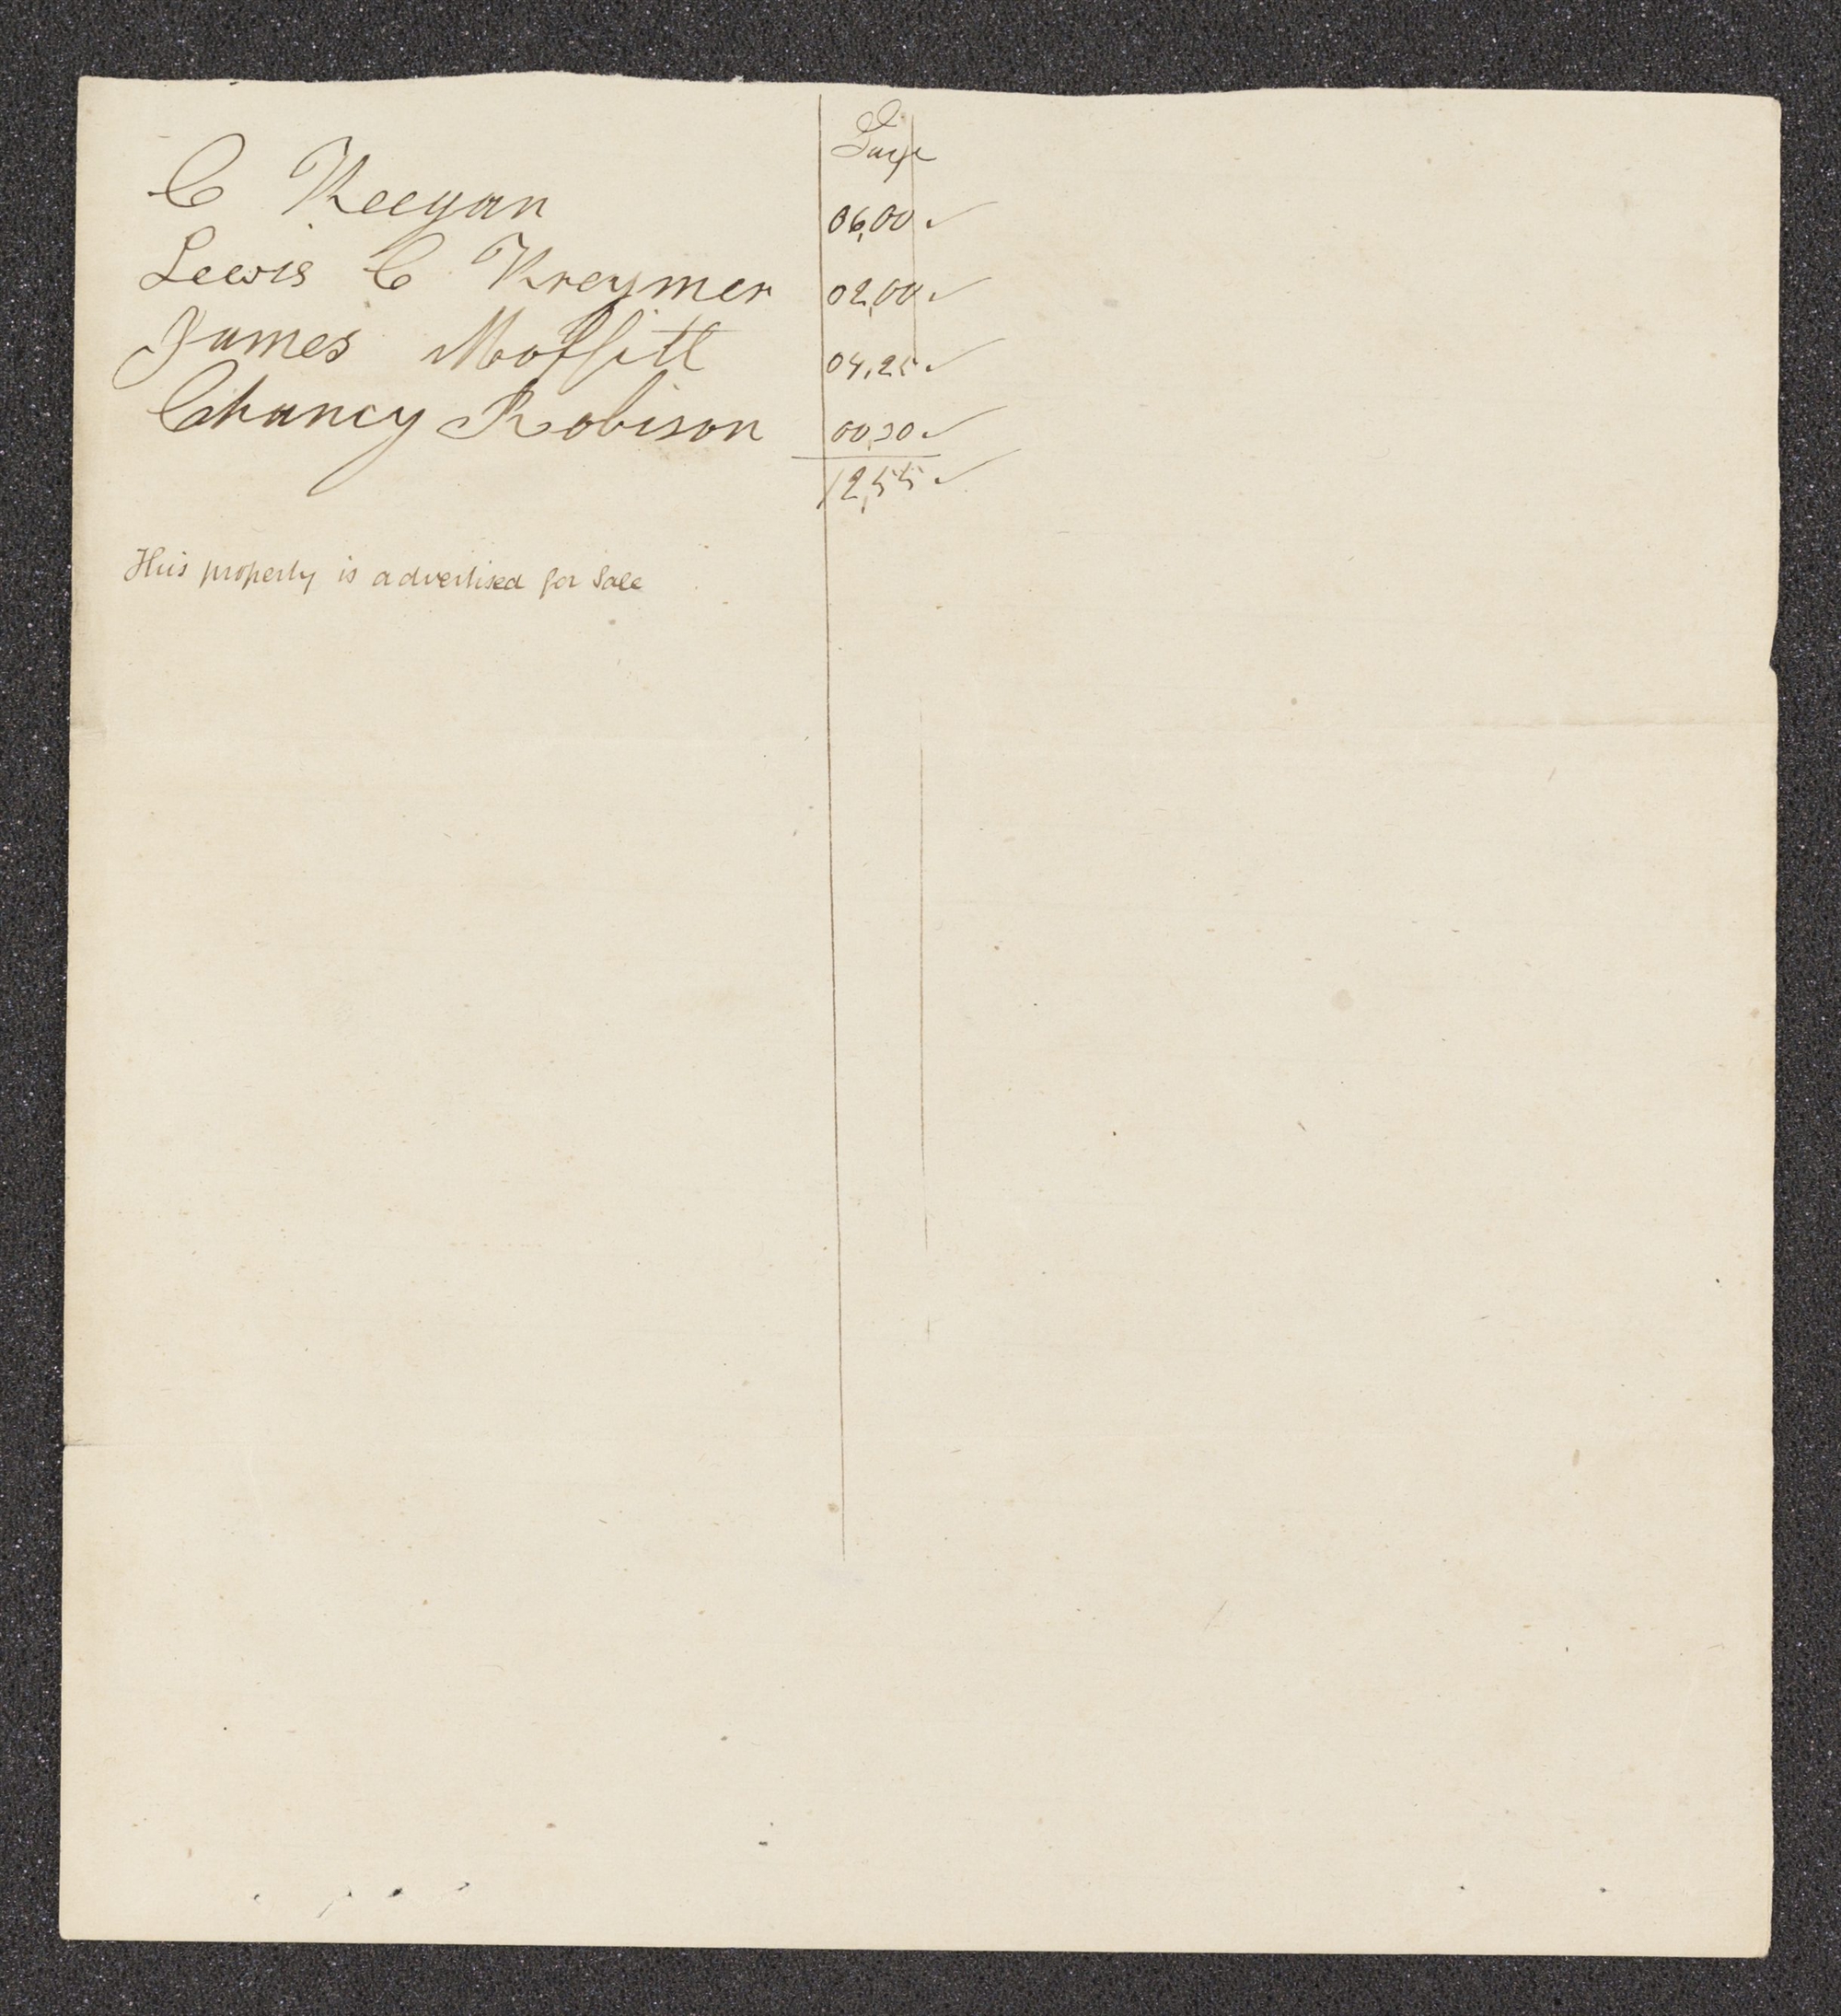 Tax
C Keegan 06,00 ✓
Lewis C Kreymer 02,00 ✓
James Moffitt 04,25 ✓
Chancy Robison 00,30 ✓
12,55 ✓
This property is advertised for Sale